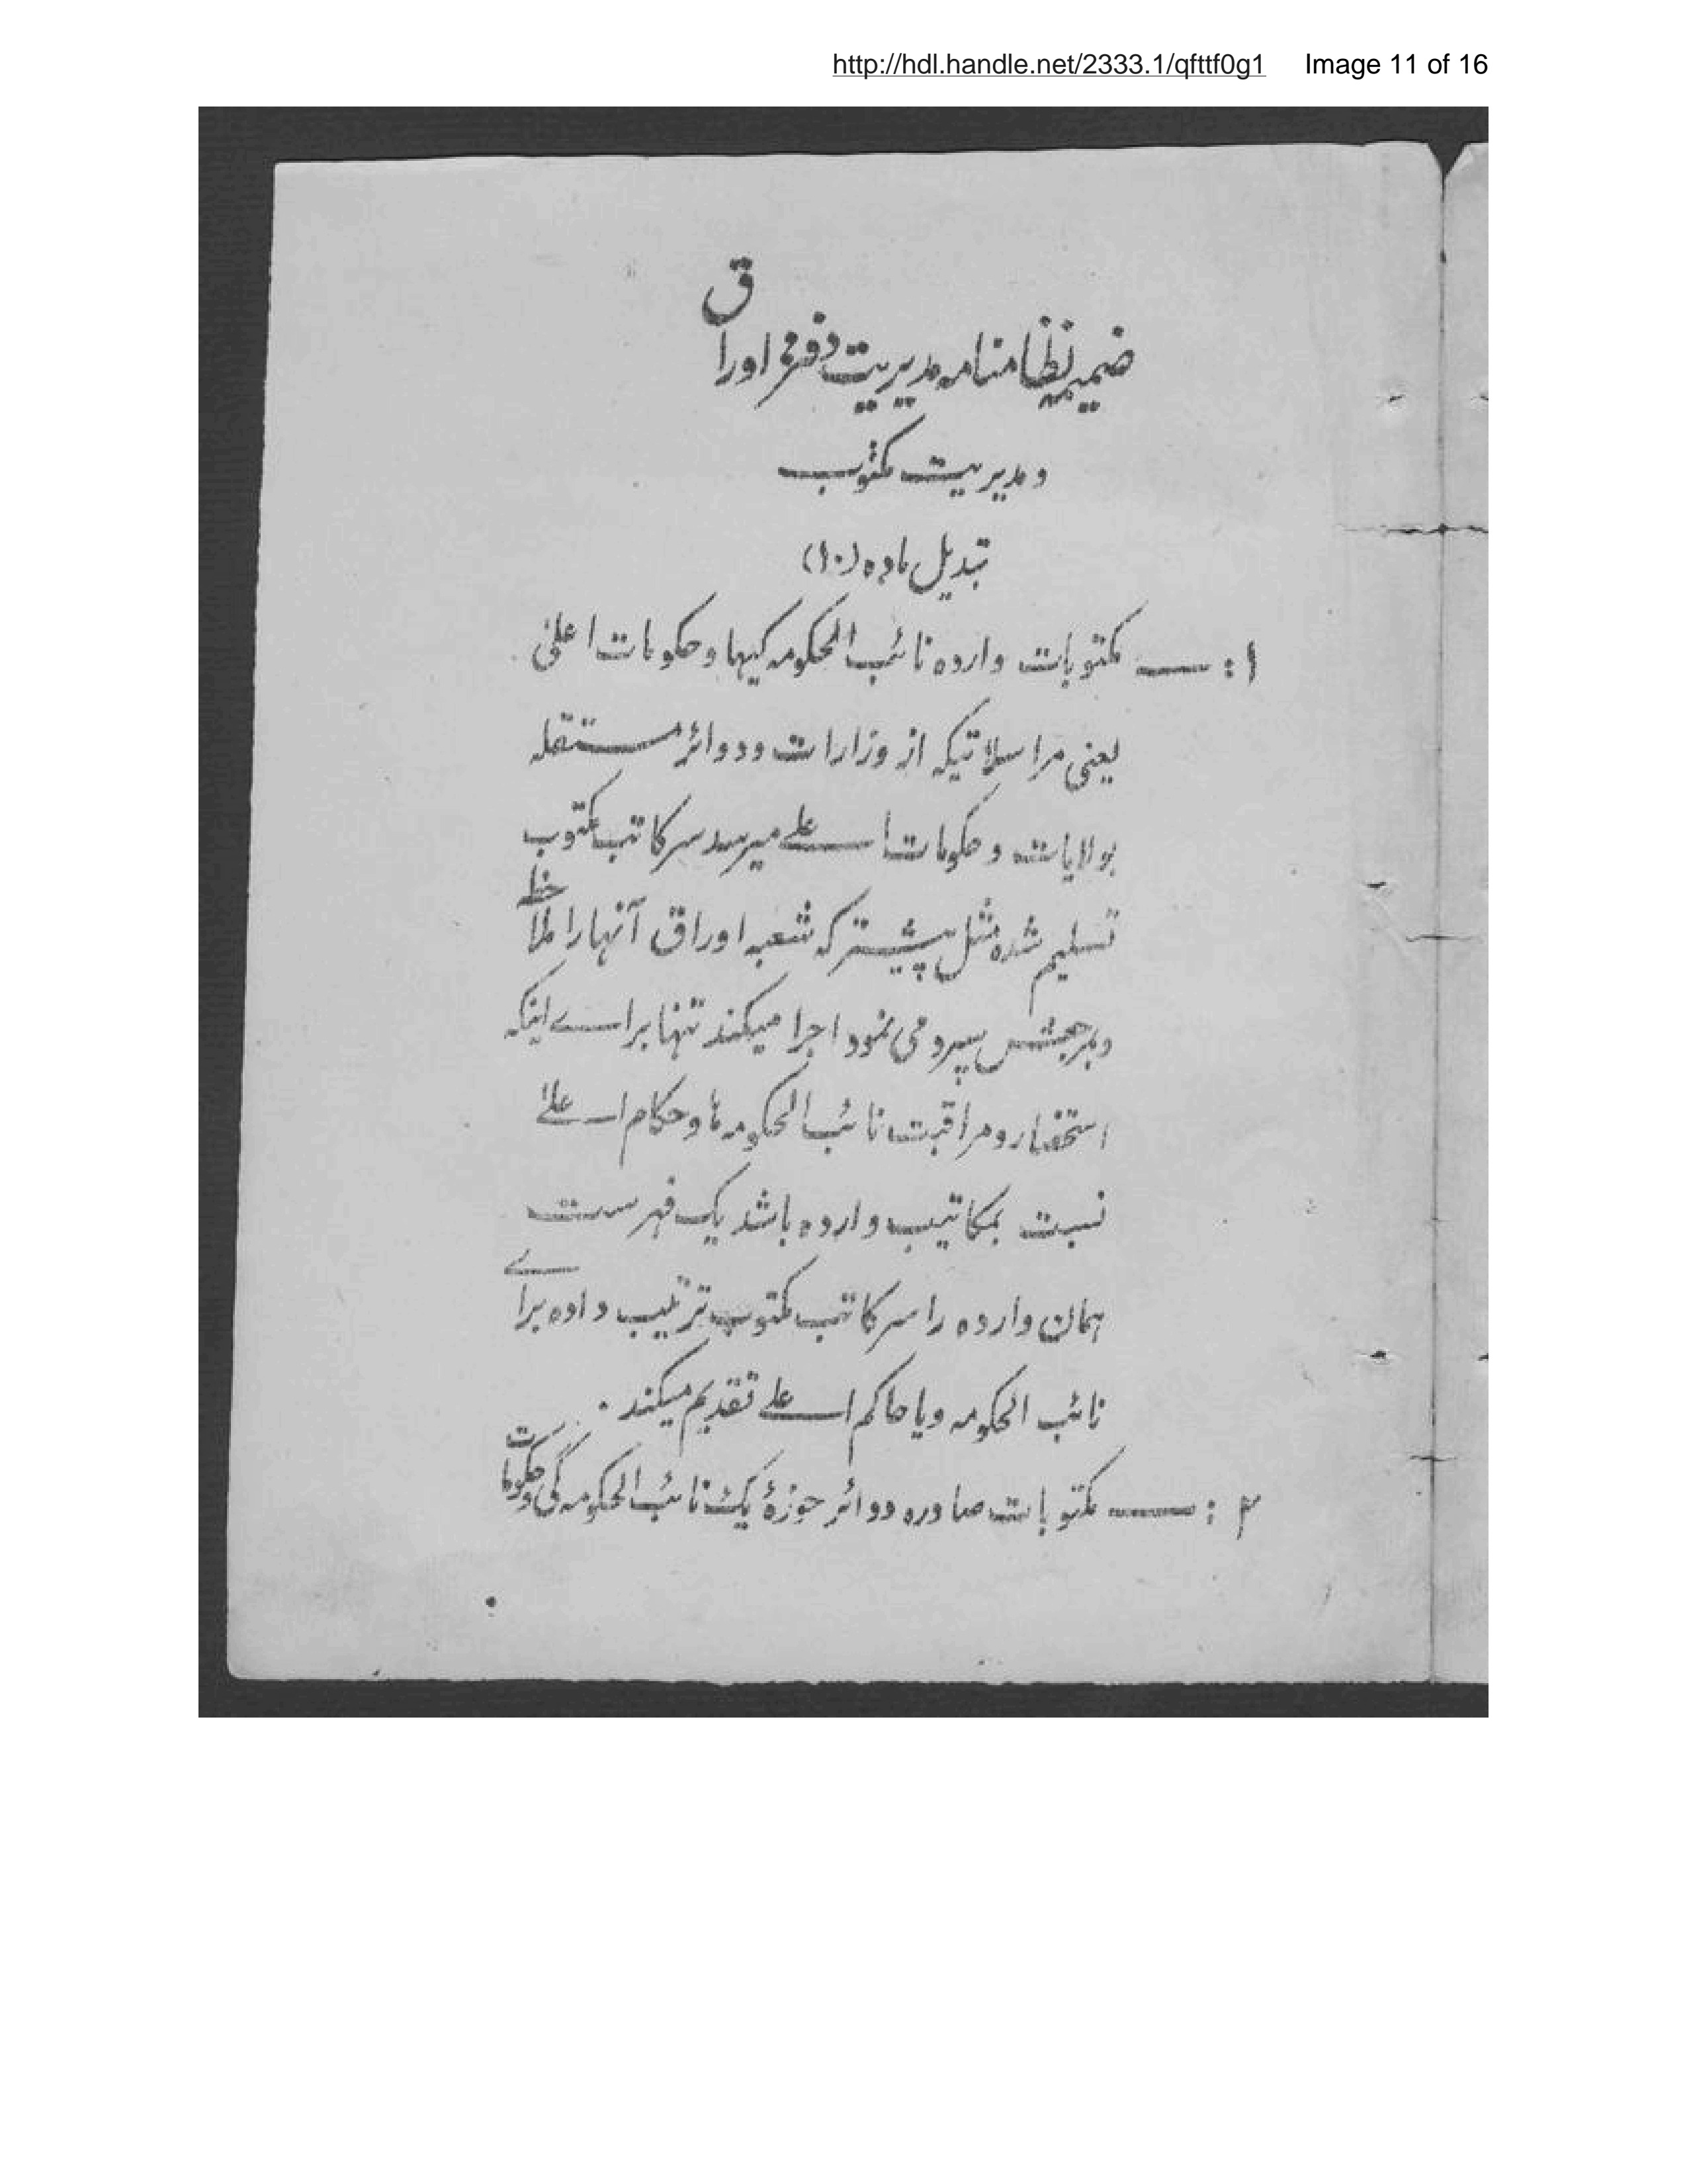 http://hdl.handle.net/2333.1/qfttf0g1 Image 11 of 16
ضمیمه نظامنامه مدیریت دفتر اوراق
و مدیریت مکتوب
تبدیل ماده (۱۰)
۱: — مکتوبات وارده نائب الحکومه گیها و حکومات اعلیٰ
یعنی مراسلاتیکه از وزارات و دوائر مستقله
بولایات و حکومات اعلے میرسد سرکاتب مکتوب
تسلیم شده مثل پیشتر که شعبه اوراق آنها را ملاحظه
و بمرجعش سپرد می نمود اجرا میکند تنها برای اینکه
استحضار و مراقبت نائب الحکومه ها و حکام اعلےٰ
نسبت بمکاتیب وارده باشد یک فهرست
همان وارده را سرکاتب مکتوب ترتیب داده برای
نائب الحکومه و یا حاکم اعلے تقدیم میکند .
۲: — مکتوبات صادره دوائر حوزهٔ یک نائب الحکومه گی و حکومات